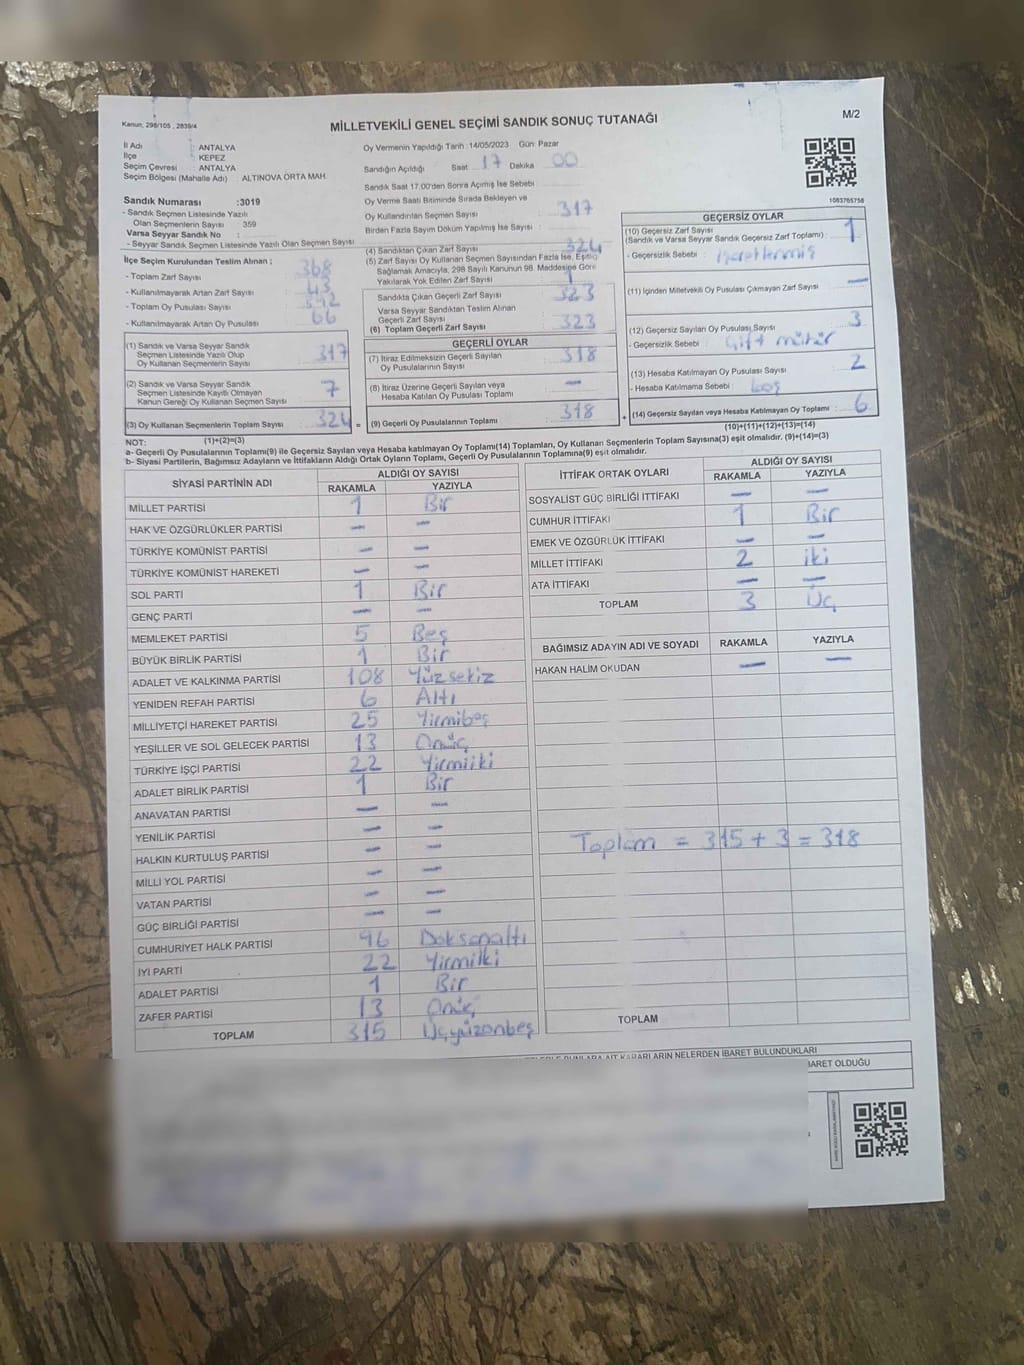 Kanun, 298/105 , 2839/4
MİLLETVEKİLİ GENEL SEÇİMİ SANDIK SONUÇ TUTANAĞI
M/2
İl Adı : ANTALYA
İlçe : KEPEZ
Seçim Çevresi : ANTALYA
Seçim Bölgesi (Mahalle Adı) : ALTINOVA ORTA MAH.
Oy Vermenin Yapıldığı Tarih : 14/05/2023 Gün: Pazar
Sandığın Açıldığı Saat 17 Dakika 00
Sandık Saat 17.00'den Sonra Açılmış İse Sebebi :
Oy Verme Saati Bitiminde Sırada Bekleyen ve
Oy Kullandırılan Seçmen Sayısı : 317
Birden Fazla Sayım Döküm Yapılmış İse Sayısı :
1083765758
Sandık Numarası :3019
- Sandık Seçmen Listesinde Yazılı
Olan Seçmenlerin Sayısı : 359
Varsa Seyyar Sandık No :
- Seyyar Sandık Seçmen Listesinde Yazılı Olan Seçmen Sayısı :
İlçe Seçim Kurulundan Teslim Alınan ;
- Toplam Zarf Sayısı : 368
- Kullanılmayarak Artan Zarf Sayısı : 43
- Toplam Oy Pusulası Sayısı :
- Kullanılmayarak Artan Oy Pusulası : 66
(1) Sandık ve Varsa Seyyar Sandık
Seçmen Listesinde Yazılı Olup
Oy Kullanan Seçmenlerin Sayısı : 317
(2) Sandık ve Varsa Seyyar Sandık
Seçmen Listesinde Kayıtlı Olmayan
Kanun Gereği Oy Kullanan Seçmen Sayısı : 7
(3) Oy Kullanan Seçmenlerin Toplam Sayısı : 324
(1)+(2)=(3)
(4) Sandıktan Çıkan Zarf Sayısı : 324
(5) Zarf Sayısı Oy Kullanan Seçmen Sayısından Fazla İse, Eşitliği
Sağlamak Amacıyla, 298 Sayılı Kanunun 98. Maddesine Göre
Yakılarak Yok Edilen Zarf Sayısı : 1
Sandıkta Çıkan Geçerli Zarf Sayısı : 323
Varsa Seyyar Sandıktan Teslim Alınan
Geçerli Zarf Sayısı :
(6) Toplam Geçerli Zarf Sayısı : 323
GEÇERLİ OYLAR
(7) İtiraz Edilmeksizin Geçerli Sayılan
Oy Pusulalarının Sayısı : 318
(8) İtiraz Üzerine Geçerli Sayılan veya
Hesaba Katılan Oy Pusulası Toplamı : —
= (9) Geçerli Oy Pusulalarının Toplamı : 318
GEÇERSİZ OYLAR
(10) Geçersiz Zarf Sayısı
(Sandık ve Varsa Seyyar Sandık Geçersiz Zarf Toplamı) : 1
- Geçersizlik Sebebi : işaretlenmiş
(11) İçinden Milletvekili Oy Pusulası Çıkmayan Zarf Sayısı : —
(12) Geçersiz Sayılan Oy Pusulası Sayısı : 3
- Geçersizlik Sebebi : Çift mühür
(13) Hesaba Katılmayan Oy Pusulası Sayısı : 2
- Hesaba Katılmama Sebebi : boş
+ (14) Geçersiz Sayılan veya Hesaba Katılmayan Oy Toplamı : 6
(10)+(11)+(12)+(13)=(14)
NOT:
a- Geçerli Oy Pusulalarının Toplamı(9) ile Geçersiz Sayılan veya Hesaba katılmayan Oy Toplamı(14) Toplamları, Oy Kullanan Seçmenlerin Toplam Sayısına(3) eşit olmalıdır. (9)+(14)=(3)
b- Siyasi Partilerin, Bağımsız Adayların ve İttifakların Aldığı Ortak Oyların Toplamı, Geçerli Oy Pusulalarının Toplamına(9) eşit olmalıdır.
SİYASİ PARTİNİN ADI
ALDIĞI OY SAYISI
RAKAMLA YAZIYLA
MİLLET PARTİSİ 1 Bir
HAK VE ÖZGÜRLÜKLER PARTİSİ — —
TÜRKİYE KOMÜNİST PARTİSİ — —
TÜRKİYE KOMÜNİST HAREKETİ — —
SOL PARTİ 1 Bir
GENÇ PARTİ — —
MEMLEKET PARTİSİ 5 Beş
BÜYÜK BİRLİK PARTİSİ 1 Bir
ADALET VE KALKINMA PARTİSİ 108 Yüzsekiz
YENİDEN REFAH PARTİSİ 6 Altı
MİLLİYETÇİ HAREKET PARTİSİ 25 Yirmibeş
YEŞİLLER VE SOL GELECEK PARTİSİ 13 Onüç
TÜRKİYE İŞÇİ PARTİSİ 22 Yirmiiki
ADALET BİRLİK PARTİSİ 1 Bir
ANAVATAN PARTİSİ — —
YENİLİK PARTİSİ — —
HALKIN KURTULUŞ PARTİSİ — —
MİLLİ YOL PARTİSİ — —
VATAN PARTİSİ — —
GÜÇ BİRLİĞİ PARTİSİ — —
CUMHURİYET HALK PARTİSİ 96 Doksanaltı
İYİ PARTİ 22 Yirmiiki
ADALET PARTİSİ 1 Bir
ZAFER PARTİSİ 13 Onüç
TOPLAM 315 Üçyüzonbeş
İTTİFAK ORTAK OYLARI
ALDIĞI OY SAYISI
RAKAMLA YAZIYLA
SOSYALİST GÜÇ BİRLİĞİ İTTİFAKI — —
CUMHUR İTTİFAKI 1 Bir
EMEK VE ÖZGÜRLÜK İTTİFAKI — —
MİLLET İTTİFAKI 2 iki
ATA İTTİFAKI — —
TOPLAM 3 Üç
BAĞIMSIZ ADAYIN ADI VE SOYADI RAKAMLA YAZIYLA
HAKAN HALİM OKUDAN — —
Toplam = 315 + 3 = 318
TOPLAM
KARARLARIN NELERDEN İBARET BULUNDUKLARI
BARET OLDUĞU